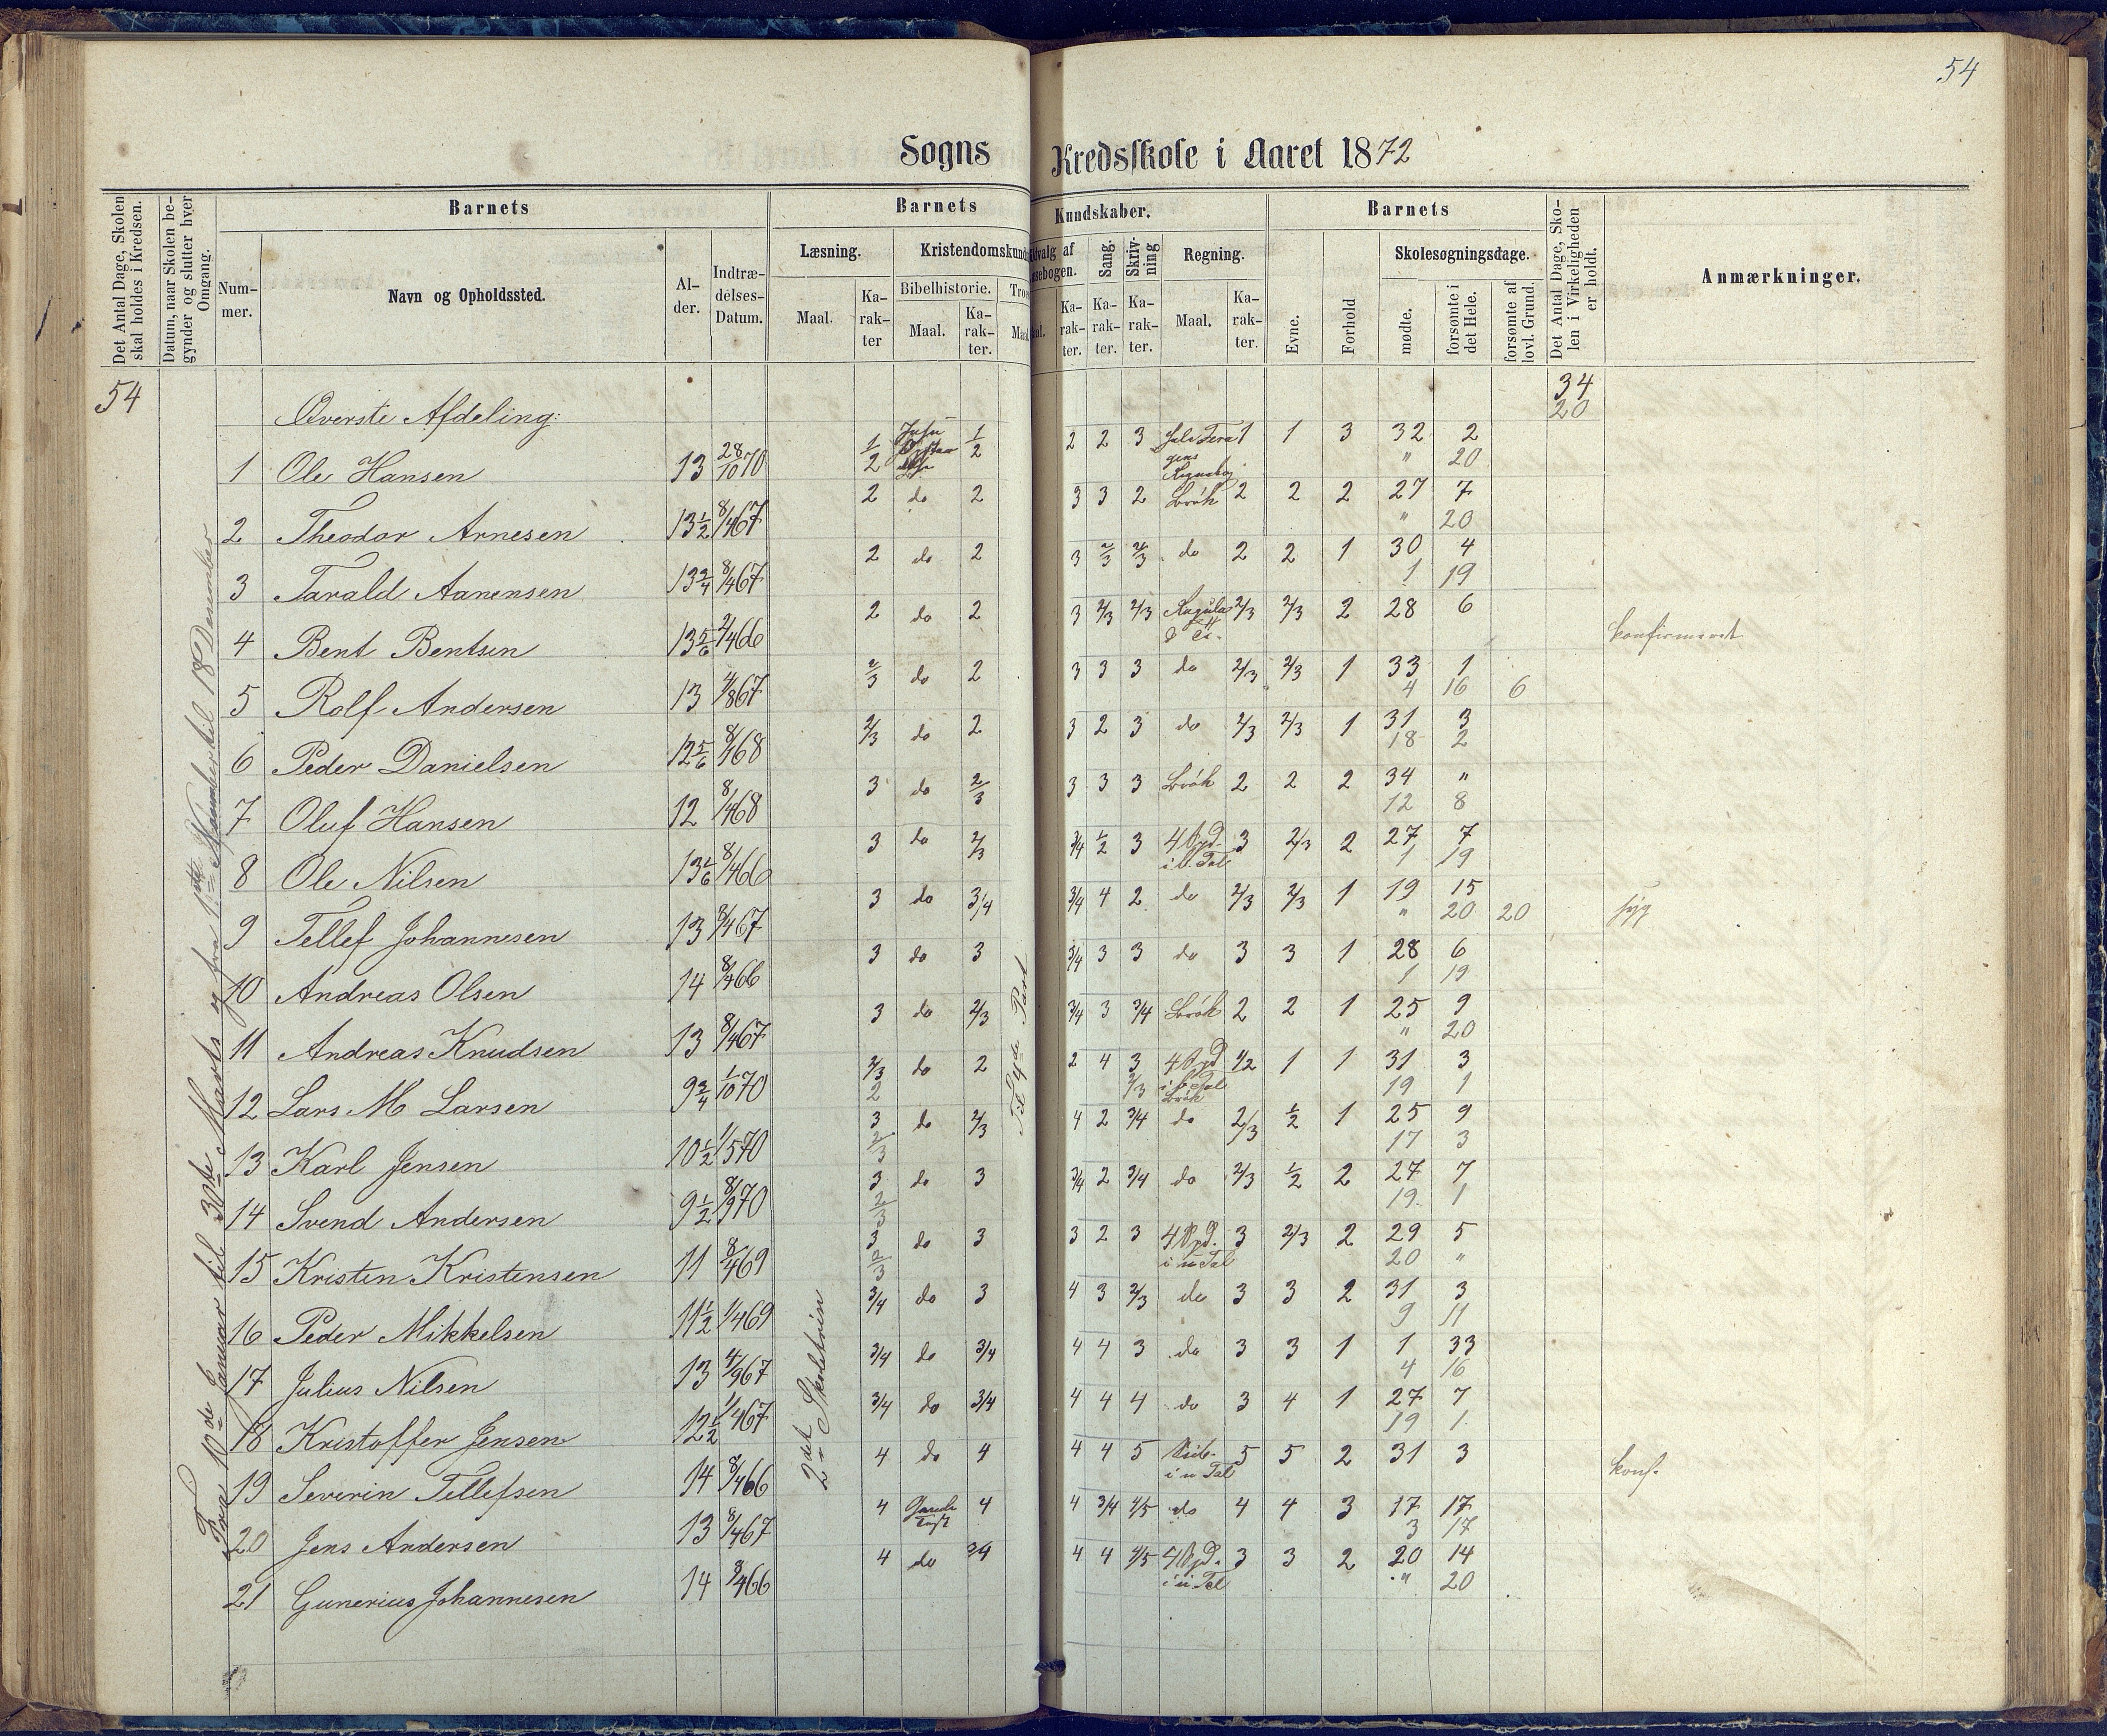 54
Sogns Kredsskole i Aaret 1872
Det Antal Dage, Skolen skal holdes i Kredsen.
Datum, naar Skolen begynder og slutter hver Omgang.
Barnets
Nummer.
Navn og Opholdssted.
Alder.
Indtrædelses-Datum.
Barnets Kundskaber.
Læsning.
Maal.
Karakter
Bibelhistorie.
Maal.
Karakter.
Sang.
Karakter.
Skrivning
Karakter.
Regning.
Maal.
Karakter.
Barnets
Evne.
Forhold
Skolesøgningsdage.
mødte.
forsømte i det Hele.
forsømte af lovl. Grund.
Det Antal Dage, Skolen i Virkeligheden er holdt.
Anmærkninger.
54
34
20
Fra 10de Januar til 30te Marts og fra 1ste November til 18 December
2det Skoletrin
Til 4de Part
Øverste Afdeling:
1 Ole Hansen 13 28/10 70 1/2 1/2 2 2 3 1 1 3 32 2
" 20
2 Theodor Arnesen 13 1/2 8/4 67 2 do 2 3 3 2 Brøk 2 2 2 27 7
" 20
3 Tarald Aanensen 13 3/4 8/4 67 2 do 2 3 2/3 2/3 do 2 2 1 30 4
1 19
4 Bent Bentsen 13 5/6 2/4 66 2 do 2 3 2/3 2/3 2/3 2/3 2 28 6 konfirmeret
5 Rolf Andersen 13 4/8 67 2/3 do 2 3 3 3 do 2/3 2/3 1 33 1
4 16 6
6 Peder Danielsen 12 5/6 8/1 68 2/3 do 2 3 2 3 do 2/3 2/3 1 31 3
18 2
7 Oluf Hansen 12 8/4 68 3 do 2/3 3 3 3 Brøk 2 2 2 34 "
12 8
8 Ole Nilsen 13 1/6 8/4 66 3 do 2/3 3/4 1/2 3 4 Opd. i b. Tal 3 2/3 2 27 7
1 19
9 Tellef Johannesen 13 8/4 67 3 do 3/4 3/4 4 2 do 2/3 2/3 1 19 15
" 20 20 syg
10 Andreas Olsen 14 8/4 66 3 do 3 3/4 3 3 do 3 3 1 28 6
1 19
11 Andreas Knudsen 13 8/4 67 3 do 2/3 3/4 3 3/4 Brøk 2 2 1 25 9
" 20
12 Lars M Larsen 9 3/4 1/10 70 2/3 do 2 2 4 3 4 Opd i b Tal 1/2 1 1 31 3
2 2/3 Brøk 19 1
13 Karl Jensen 10 1/2 1/5 70 3 do 2/3 4 2 3/4 do 2/3 1/2 1 25 9
2/3 17 3
14 Svend Andersen 9 1/2 8/9 70 3 do 3 3/4 2 3/4 do 2/3 1/2 2 27 7
2/3 19 1
15 Kristen Kristensen 11 8/4 69 3 do 3 3 2 3 4 Opd. i u Tal 3 2/3 2 29 5
2/3 20 "
16 Peder Mikkelsen 11 1/2 1/4 69 3/4 do 3 4 3 2/3 do 3 3 2 31 3
9 11
17 Julius Nilsen 13 4/9 67 3/4 do 3/4 4 4 3 do 3 3 1 1 33
4 16
18 Kristoffer Jensen 12 1/2 1/4 67 3/4 do 3/4 4 4 4 do 3 4 1 27 7
19 1
19 Severin Tellefsen 14 8/4 66 4 do 4 4 4 5 i u Tal 5 5 2 31 3 konf.
20 Jens Andersen 13 8/4 67 4 4 4 3/4 4/5 do 4 4 3 17 17
3 17
21 Gunerius Johannesen 14 8/4 66 4 do 3/4 4 4 4/5 4 Opd. i u Tal 3 3 2 20 14
" 20